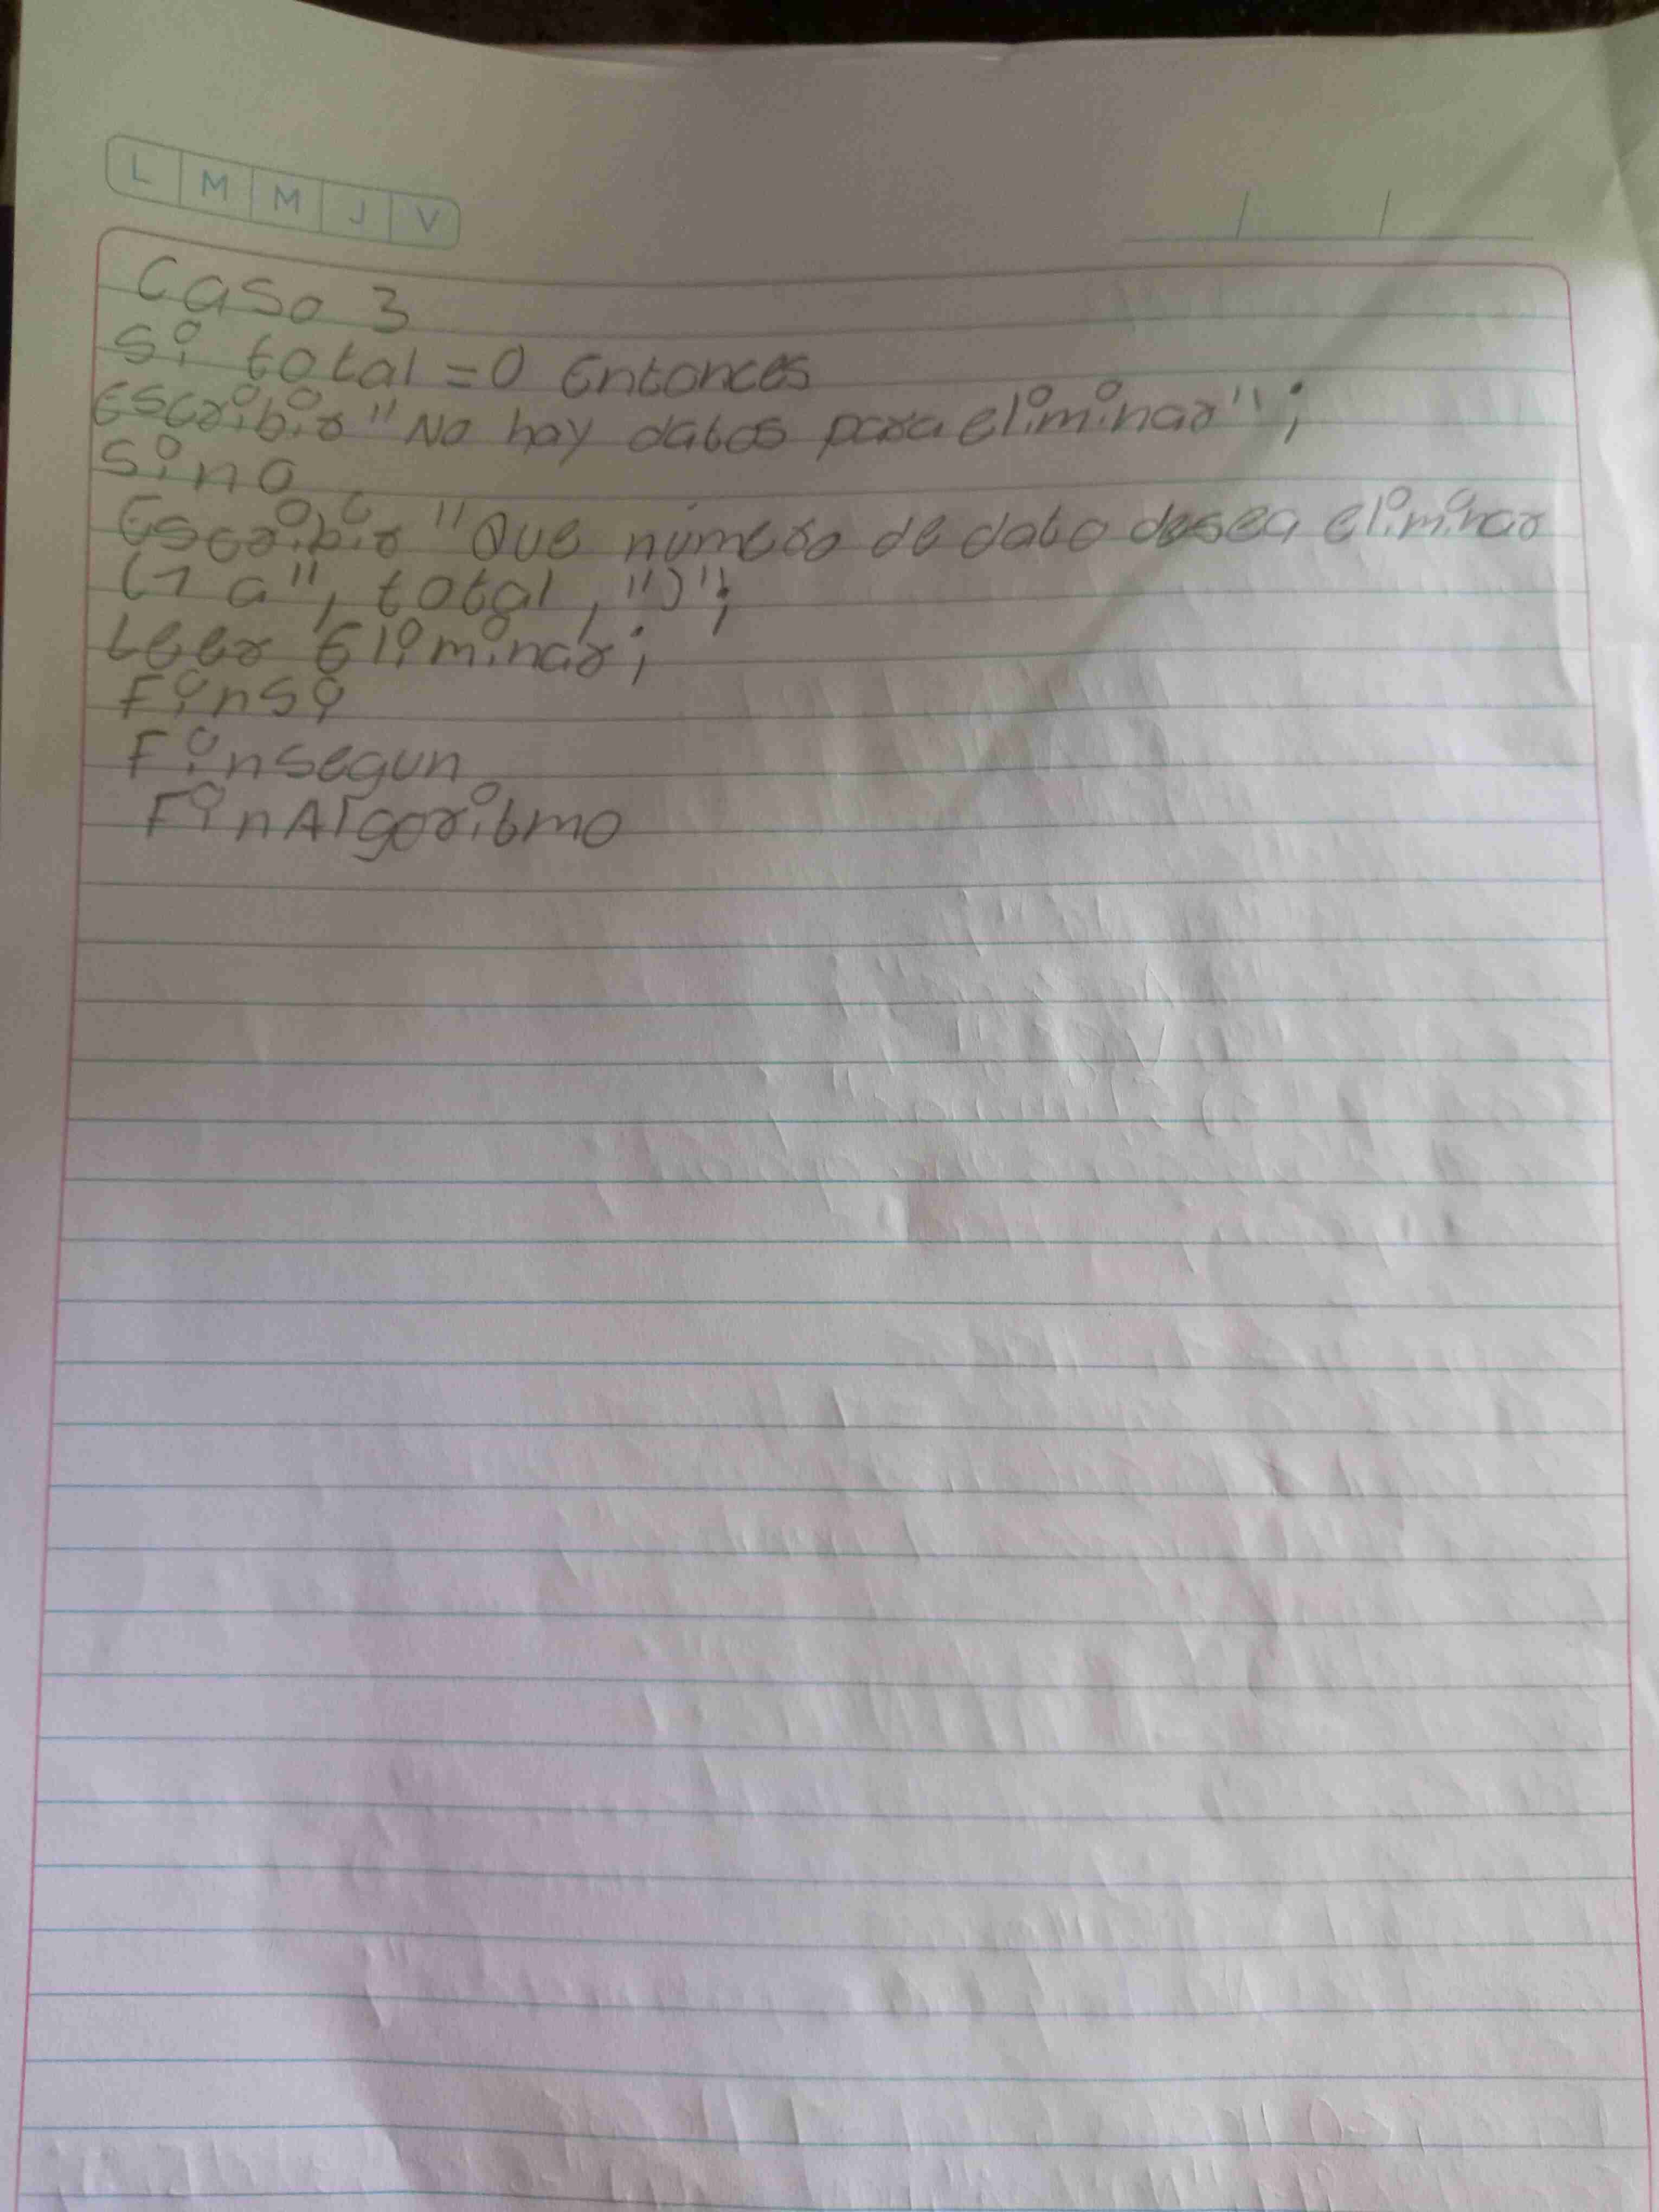 L M M J V
/ /
Caso 3
Si total = 0 Entonces
Escribir "No hay datos para eliminar";
Sino
Escribir "Que número de dato desea eliminar
(1 a", total, ")";
Leer Eliminar;
FinSi
Finsegun
FinAlgoritmo